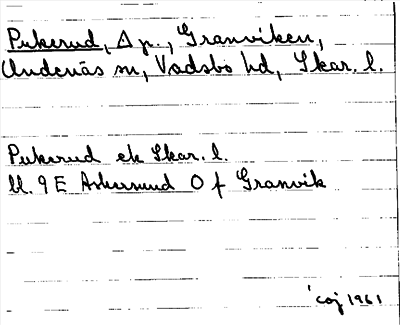 Pukerud, Δ p., Granviken,
Undenäs sn, Vadsbo hd, Skar. l.
Pukerud ek Skar. l.
bl. 9E Askersund O f Granvik
coj 1961